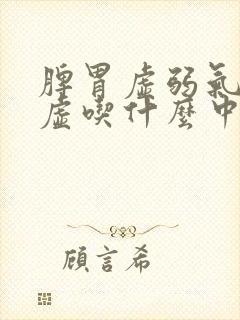 脾胃虛弱氣
虛喫什麼中
顧言希